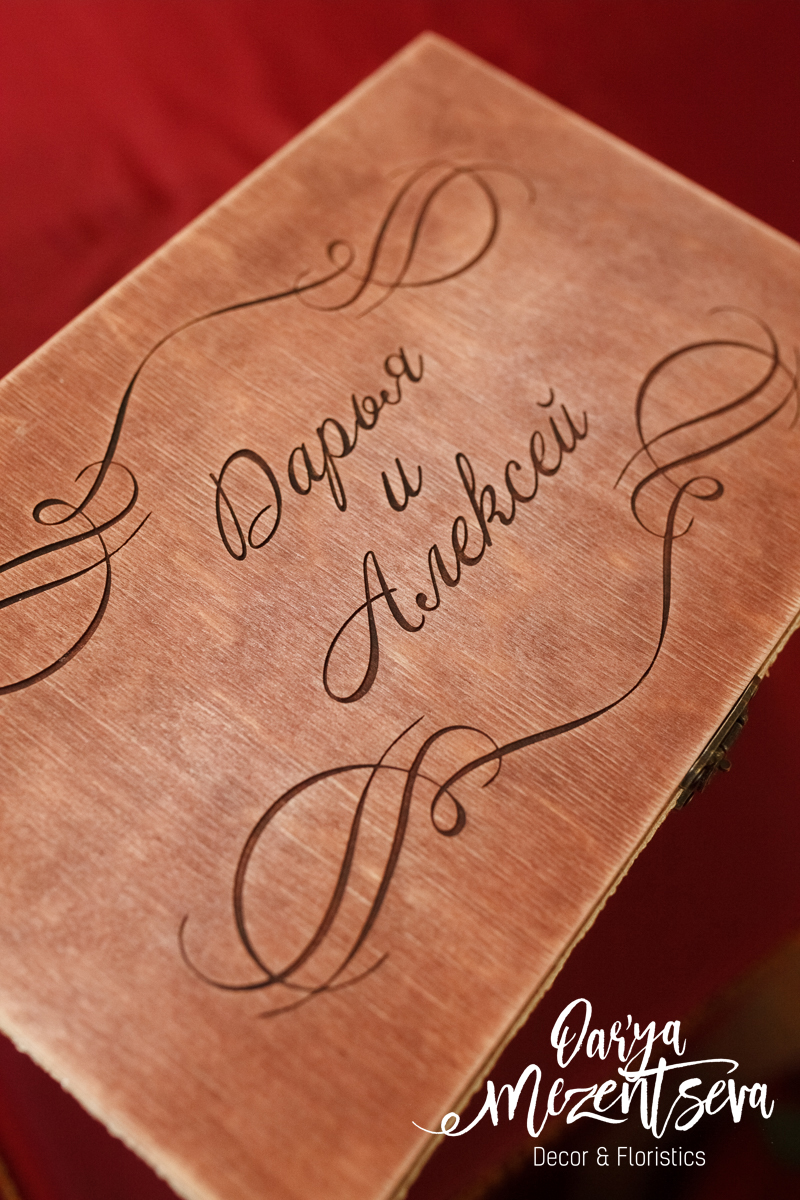 Дарья
и
Алексей
Dar'ya
Mezentseva
Decor & Floristics